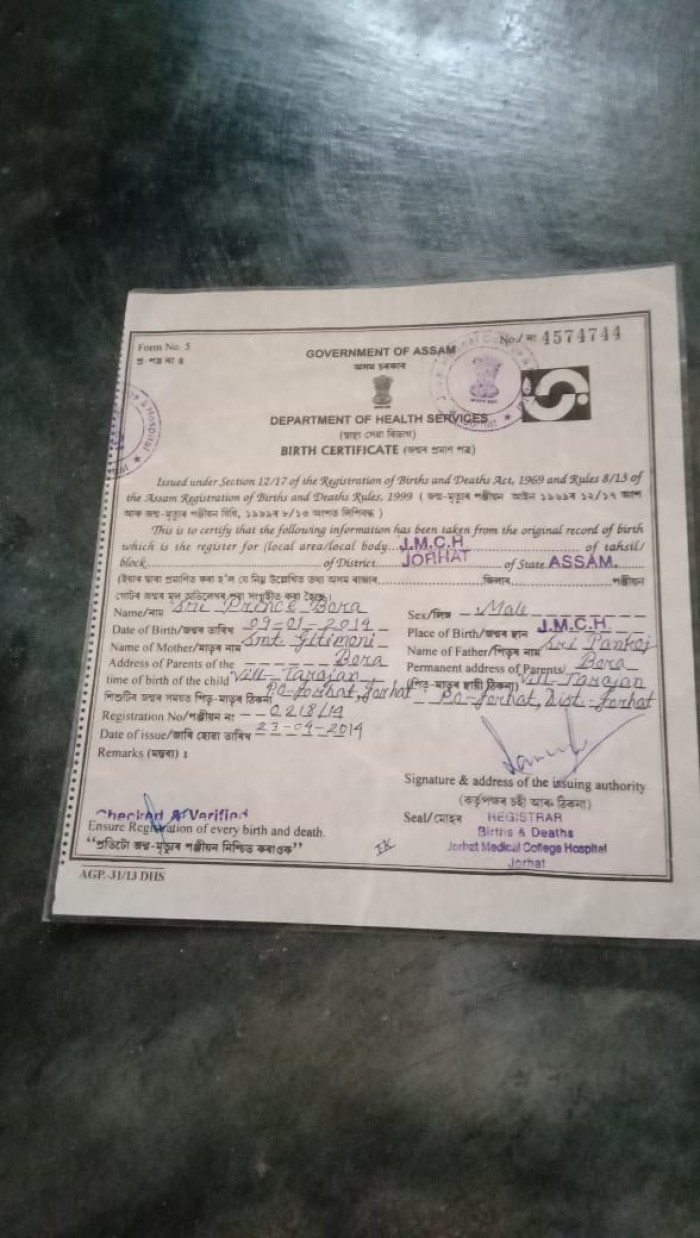 Form No. 5
প্ৰ-পত্ৰ নং ৫
No./ নং 4574744
GOVERNMENT OF ASSAM
অসম চৰকাৰ
DEPARTMENT OF HEALTH SERVICES
(স্বাস্থ্য সেৱা বিভাগ)
BIRTH CERTIFICATE (জন্মৰ প্ৰমাণ পত্ৰ)
Issued under Section 12/17 of the Registration of Births and Deaths Act, 1969 and Rules 8/13 of
the Assam Registration of Births and Deaths Rules, 1999 ( জন্ম-মৃত্যুৰ পঞ্জীয়ন আইন ১৯৬৯ৰ ১২/১৭ আৰু
This is to certify that the following information has been taken from the original record of birth
which is the register for (local area/local body...J.M.C.H............of tahsil/
block..................of District JORHAT of State ASSAM.
(ইয়াৰ দ্বাৰা প্ৰমাণিত কৰা হ'ল যে নিম্ন উল্লেখিত তথ্য অসম ৰাজ্যৰ..............জিলাৰ..............পঞ্জীয়ন
Name/নাম Sri Prince Bora
Sex/লিঙ্গ Male
Date of Birth/জন্মৰ তাৰিখ 09-01-2014
Place of Birth/জন্মৰ স্থান J.M.C.H.
Name of Mother/মাতৃৰ নাম Smt. Gitimoni Bora
Name of Father/পিতৃৰ নাম Sri Pankaj Bora
Address of Parents of the
time of birth of the child Vill-Tarajan
শিশুটিৰ জন্মৰ সময়ত পিতৃ-মাতৃৰ ঠিকনা PO-Jorhat, Jorhat
Permanent address of Parents/
(পিতৃ-মাতৃৰ স্থায়ী ঠিকনা) Vill-Tarajan
PO-Jorhat, Dist-Jorhat
Registration No/পঞ্জীয়ন নং: 0218/14
Date of issue/জাৰি হোৱা তাৰিখ 23-04-2014
Remarks (মন্তব্য) :
Signature & address of the issuing authority
(কৰ্তৃপক্ষৰ চহী আৰু ঠিকনা)
Seal/মোহৰ REGISTRAR
Births & Deaths
Jorhat Medical College Hospital
Jorhat
Checked & Verified
Ensure Registration of every birth and death.
"প্ৰতিটো জন্ম-মৃত্যুৰ পঞ্জীয়ন নিশ্চিত কৰাওক"
AGP.-31/13 DHS